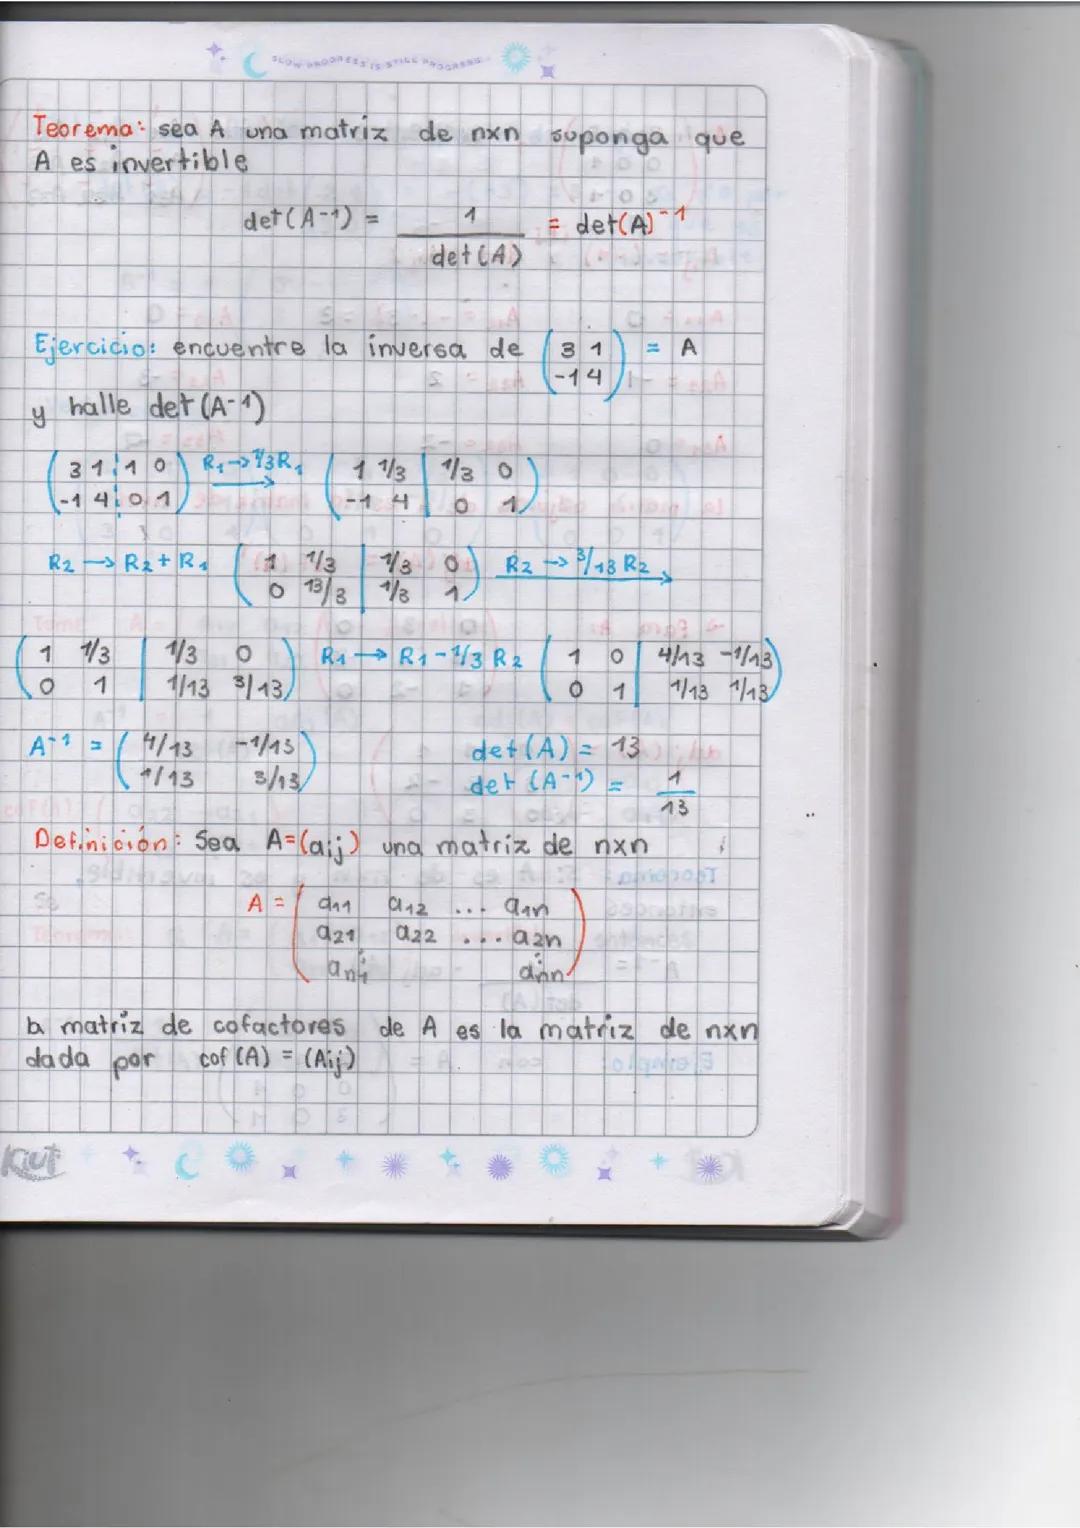 SLOW PROGRESS IS STILL PROGRESS
Teorema: sea A una matriz de nxn suponga que
A es invertible
det(A-1) = 1/det(A) = det(A)-1
Ejercicio: encuentre la inversa de (3 1 / -1 4) = A
y halle det(A-1)
(3 1 | 1 0 / -1 4 | 0 1) R1→1/3R1 (1 1/3 | 1/3 0 / -1 4 | 0 1)
R2 → R2 + R1 (1 1/3 | 1/3 0 / 0 13/3 | 1/3 1) R2 → 3/13 R2
(1 1/3 | 1/3 0 / 0 1 | 1/13 3/13) R1 → R1 - 1/3 R2 (1 0 | 4/13 -1/13 / 0 1 | 1/13 1/13)
A-1 = (4/13 -1/13 / 1/13 3/13) det(A) = 13
det(A-1) = 1/13
Definición: Sea A=(aij) una matriz de nxn
A = (a11 a12 ... a1n
a21 a22 ... a2n
an1 ann)
la matriz de cofactores de A es la matriz de nxn
dada por cof(A) = (Aij)
Kiut